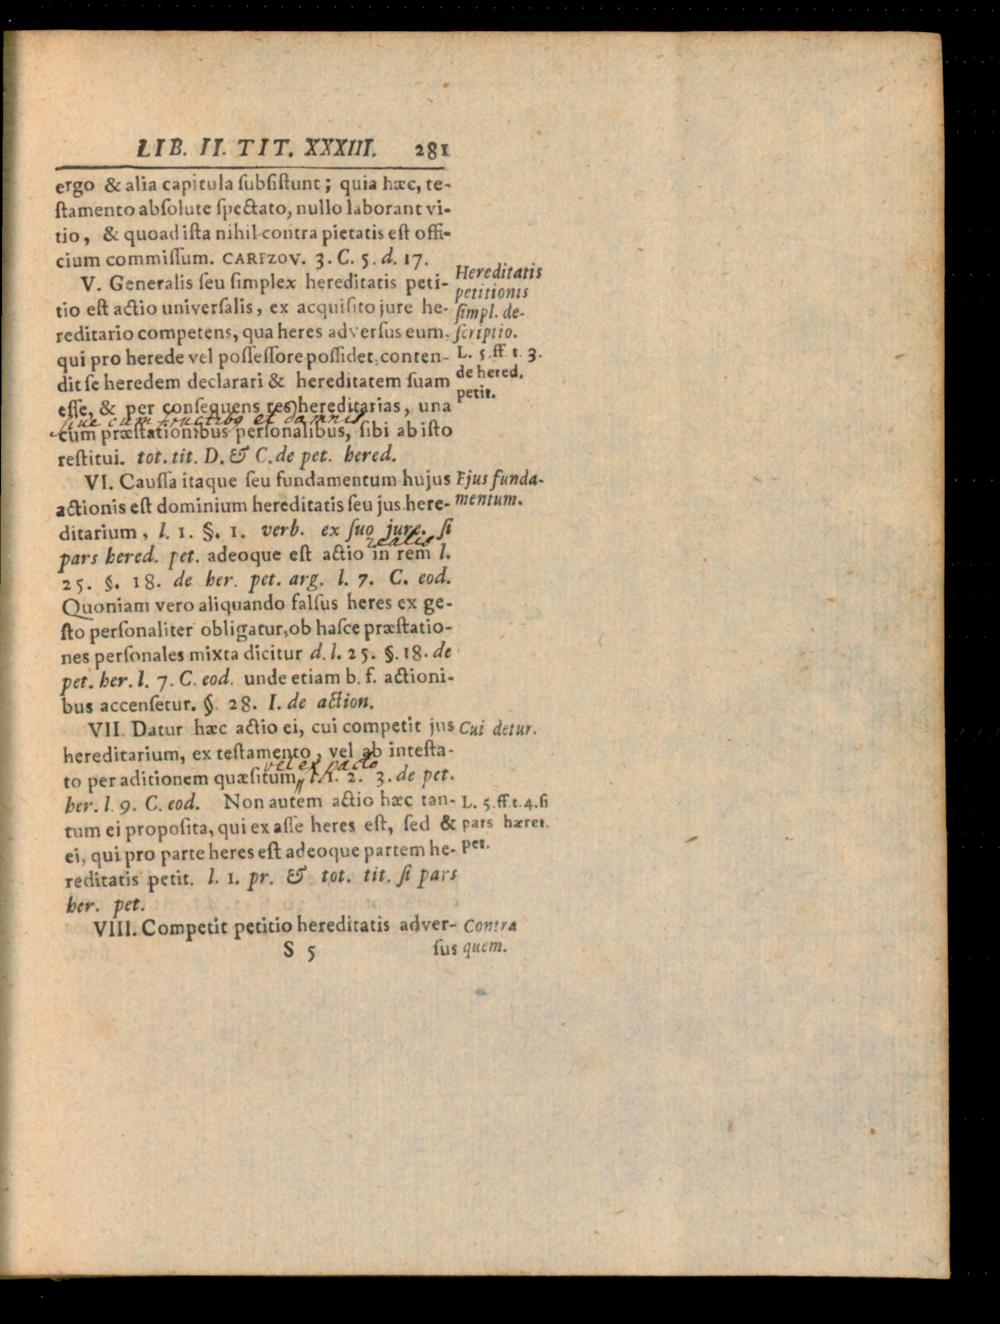 LIB. II. TIT. XXXIII. 281
ergo & alia capitula ſubſiſtunt; quia hæc, te-
ſtamento abſolute ſpectato, nullo laborant vi-
tio, & quoad iſta nihil contra pietatis eſt offi-
cium commiſſum. CARPZOV. 3. C. 5. d. 17.
V. Generalis ſeu ſimplex hereditatis peti-
tio eſt actio univerſalis, ex acquiſito jure he-
reditario competens, qua heres adverſus eum.
qui pro herede vel poſſeſſore poſſidet, conten-
dit ſe heredem declarari & hereditatem ſuam
eſſe, & per conſequens res hereditarias, una
ſive cum fructibq et damnis
cum præſtationibus perſonalibus, ſibi ab iſto
reſtitui. tot. tit. D. & C. de pet. hered.
Hereditatis
petitionis
ſimpl. de-
ſcriptio.
L. 5. ff. t. 3.
de hered.
petit.
VI. Cauſſa itaque ſeu fundamentum hujus
actionis eſt dominium hereditatis ſeu jus here-
ditarium, l. 1. §. 1. verb. ex ſuo jure. ſi
realis
pars hered. pet. adeoque eſt actio in rem l.
25. §. 18. de her. pet. arg. l. 7. C. eod.
Quoniam vero aliquando falſus heres ex ge-
ſto perſonaliter obligatur, ob haſce præſtatio-
nes perſonales mixta dicitur d. l. 25. §. 18. de
pet. her. l. 7. C. eod. unde etiam b. f. actioni-
bus accenſetur. §. 28. I. de action.
Ejus funda-
mentum.
VII. Datur hæc actio ei, cui competit jus
hereditarium, ex teſtamento, vel ab inteſta-
vel ex pacto
to per aditionem quæſitum, l. 1. 2. 3. de pet.
her. l. 9. C. eod. Non autem actio hæc tan-
tum ei propoſita, qui ex aſſe heres eſt, ſed &
ei, qui pro parte heres eſt adeoque partem he-
reditatis petit. l. 1. pr. & tot. tit. ſi pars
her. pet.
Cui detur.
L. 5. ff. t. 4. ſi
pars hæret.
pet.
VIII. Competit petitio hereditatis adver-
Contra
quem.
S 5 ſus